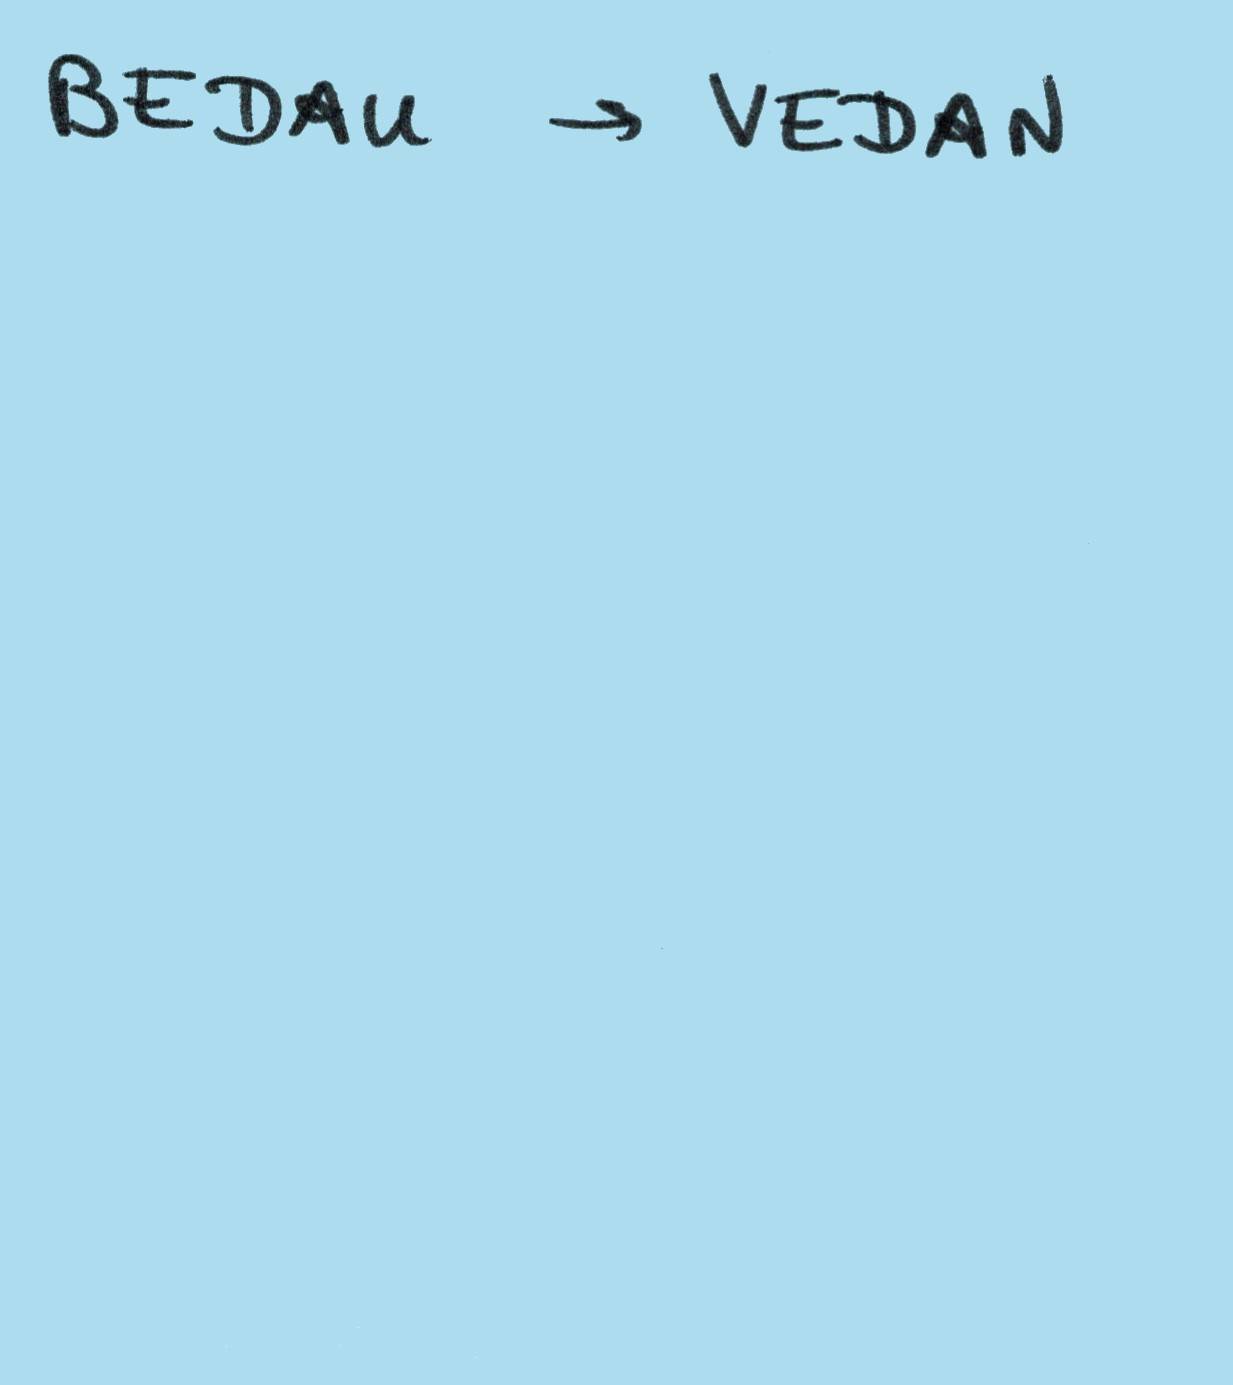 BEDAU → VEDAN